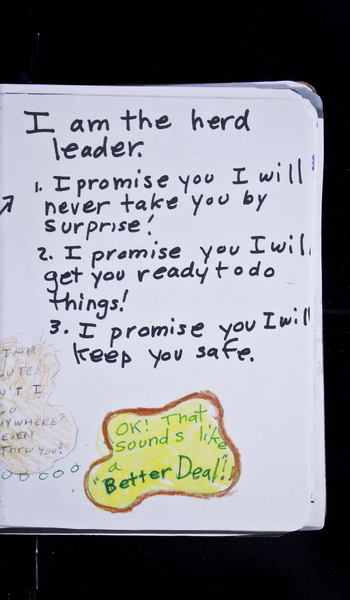 I am the herd
leader.
1. I promise you I will
never take you by
surprise!
2. I promise you I will
get you ready to do
things!
3. I promise you I will
keep you safe.
I AM
N'T I
GO
NYWHERE?
EVEN
THRU YOU!
OK! That
sounds like
a
"Better Deal!!